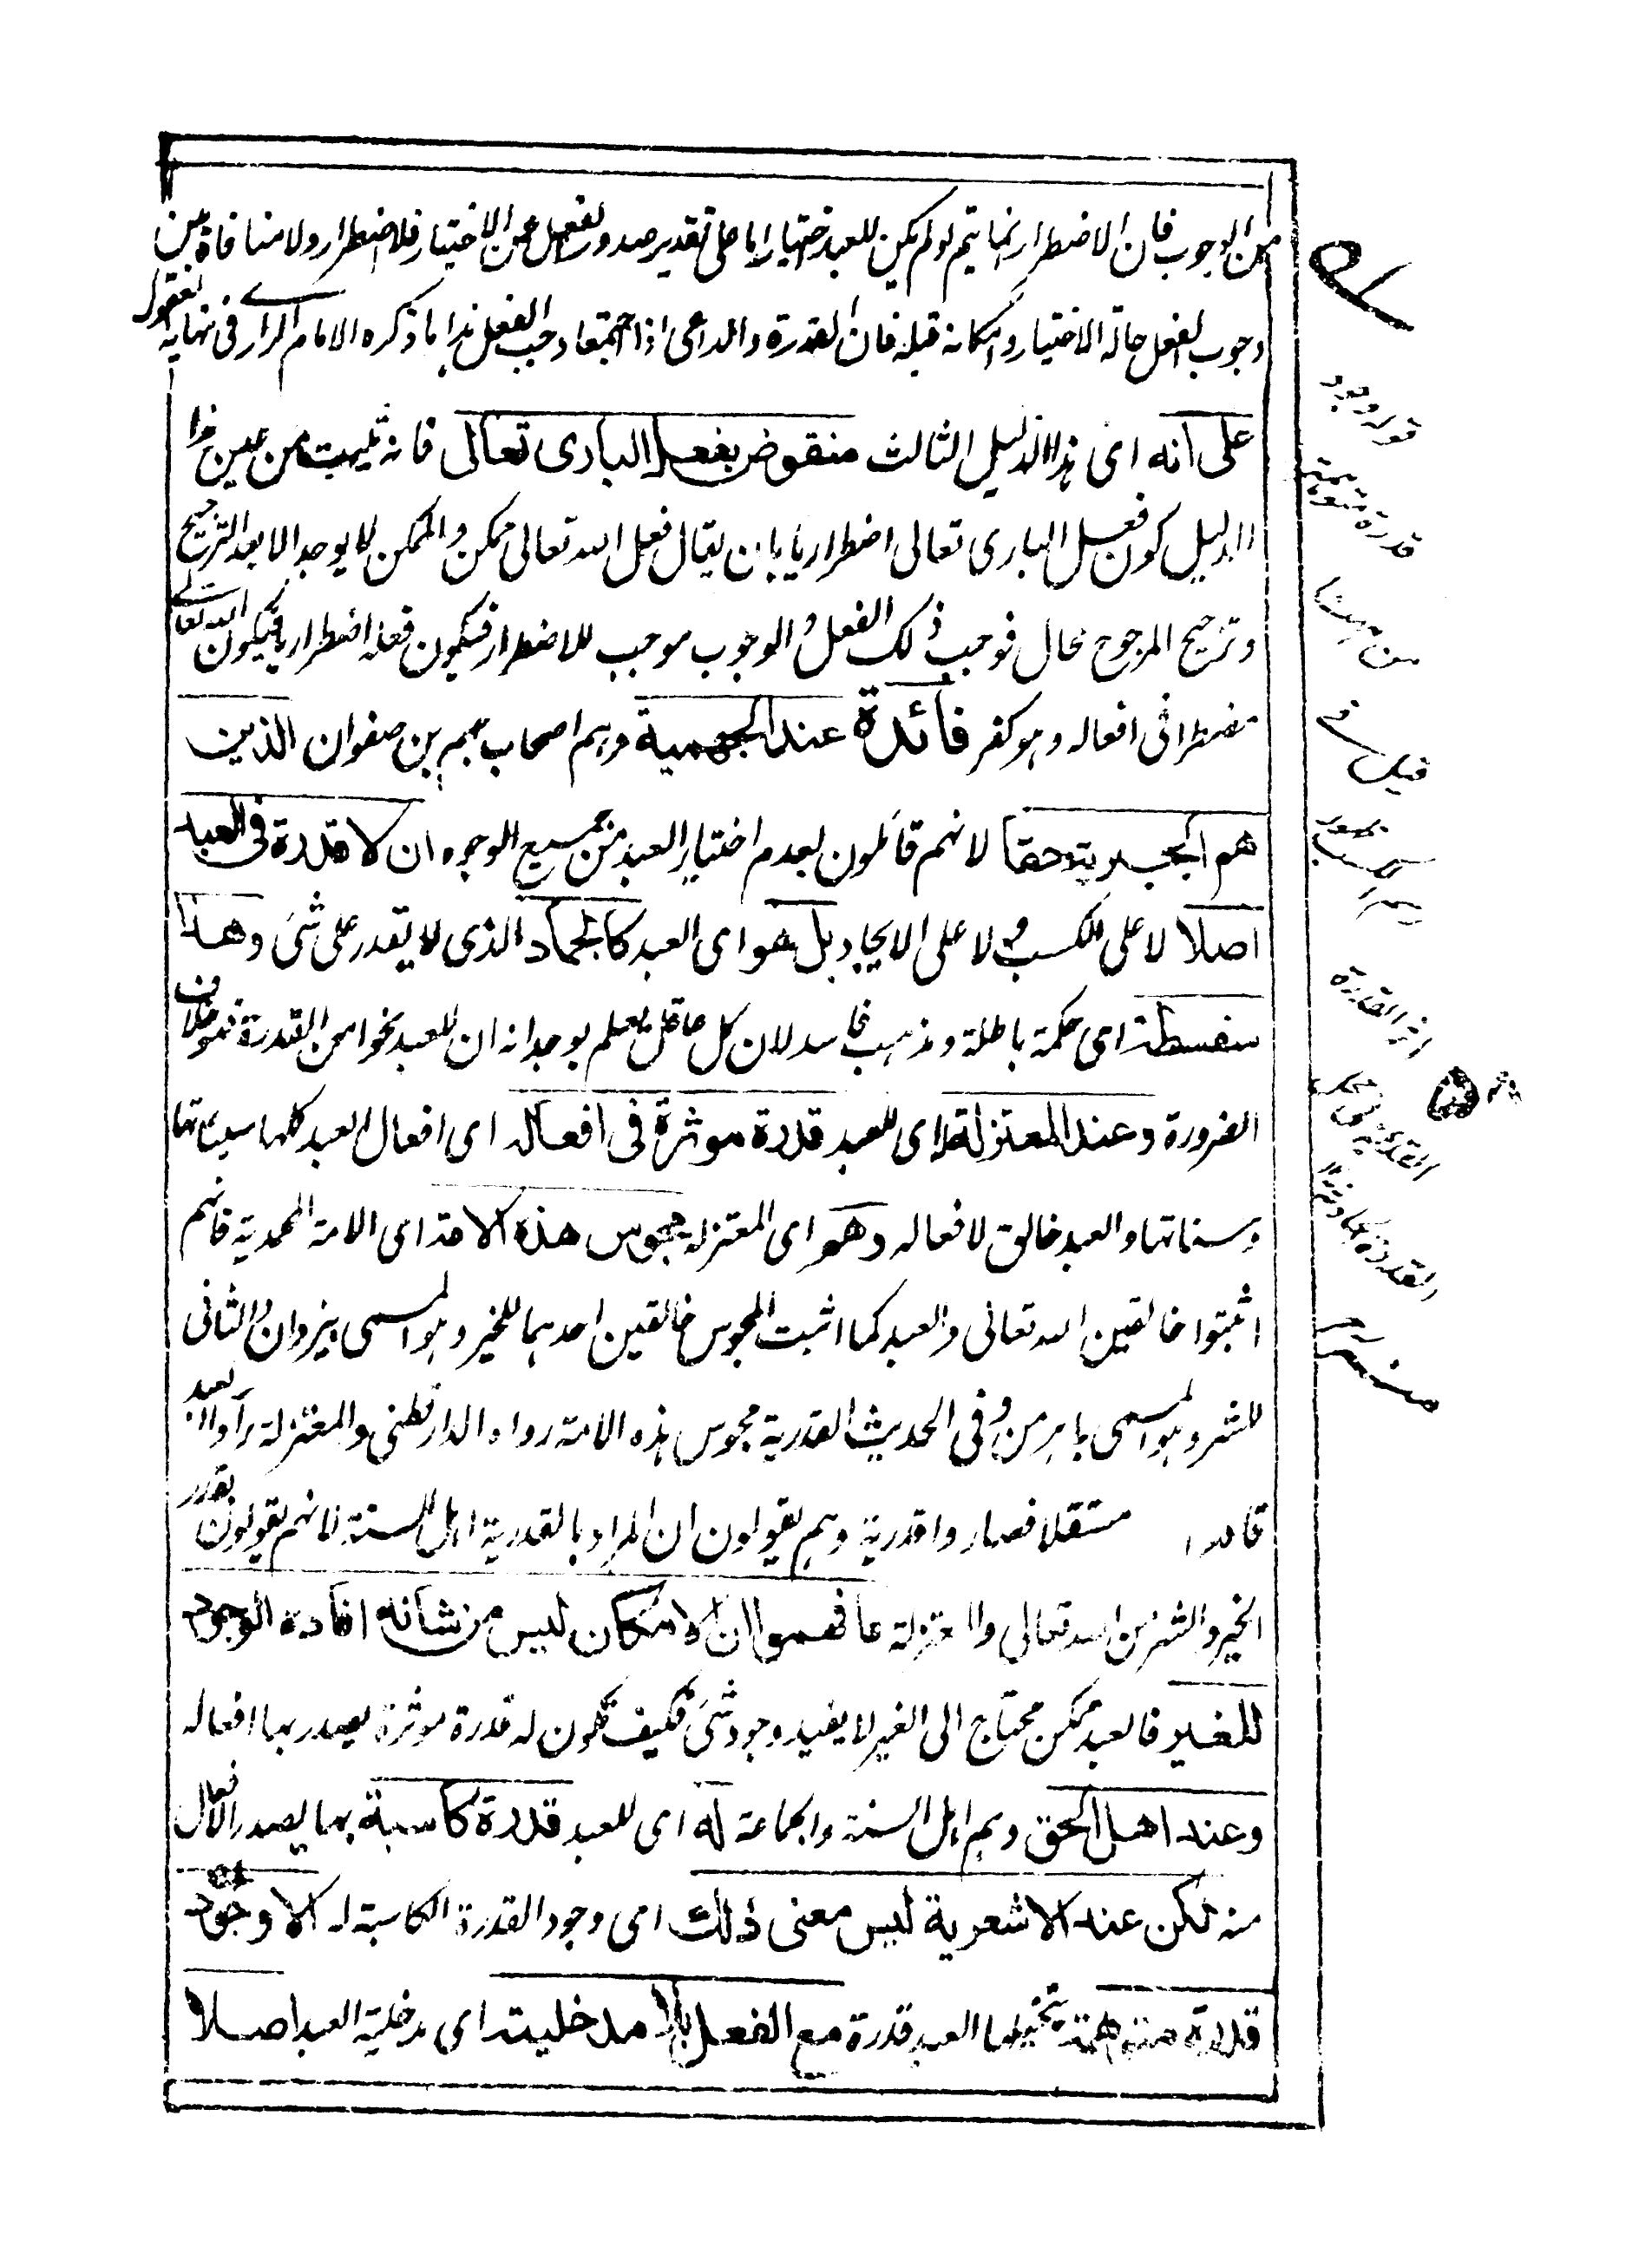 من الوجوب فان الاضطرار انما يتم لو لم يكن للعبد اختيار اما على تقدير صدور الفعل عن الاختيار فلا اضطرار ولا منافاة بين
وجوب الفعل حالة الاختيار وامكانه قبله فان القدرة والداعى اذا اجتمعا وجب الفعل هذا ما ذكره الامام الرازي فى نهاية العقول
على انه اى هذا الدليل الثالث منقوض بفعل البارى تعالى فانه يثبت من عين هذا
الدليل كون فعل البارى تعالى اضطراريا بان يقال فعل الله تعالى ممكن والممكن لا يوجد الا بعد الترجيح
وترجيح المرجوح محال فوجب ذلك الفعل والوجوب موجب للاضطرار فيكون فعله اضطراريا فيكون الله تعالى
مضطرا فى افعاله وهو كفر فائدة عند الجهمية وهم اصحاب جهم بن صفوان الذين
هم الجبرية حقا لانهم قائلون بعدم اختيار العبد من جميع الوجوه ان لا قدرة فى العبد
اصلا لا على الكسب ولا على الايجاد بل هو اى العبد كالجماد الذى لا يقدر على شئ وهذا
سفسطة اى حكمة باطلة ومذهب فاسد لان كل عاقل يعلم بوجدانه ان للعبد نحوا من القدرة فهو خلاف
الضرورة وعند المعتزلة له اى للعبد قدرة موثرة فى افعاله اى افعال العبد كلها سيئاتها
وحسناتها والعبد خالق لافعاله وهم اى المعتزلة مجوس هذه الامة اى الامة المحمدية فانهم
اثبتوا خالقين الله تعالى والعبد كما اثبت المجوس خالقين احدهما للخير وهو المسمى بيزدان والثانى
للشر وهو المسمى باهرمن وفى الحديث القدرية مجوس هذه الامة رواه الدارقطنى والمعتزلة رأوا العبد
قادرا مستقلا فصاروا قدرية وهم يقولون ان المراد بالقدرية اهل السنة لانهم يقولون بقدر
الخير والشر من الله تعالى والمعتزلة ما فهموا ان الامكان ليس من شانه افادة الوجود
للغير فالعبد ممكن محتاج الى الغير لا يفيد وجود شئ فكيف تكون له قدرة موثرة يصدر بها افعاله
وعند اهل الحق وهم اهل السنة والجماعة له اى للعبد قدرة كاسبة بها يصدر الافعال
منه لكن عند الاشعرية ليس معنى ذلك اى وجود القدرة الكاسبة له الا وجود
قدرة متوهمة يتخيلها العبد قدرة مع الفعل بلا مدخلية اى مدخلية العبد اصلا
قوله وجود
قدرة متوهمة